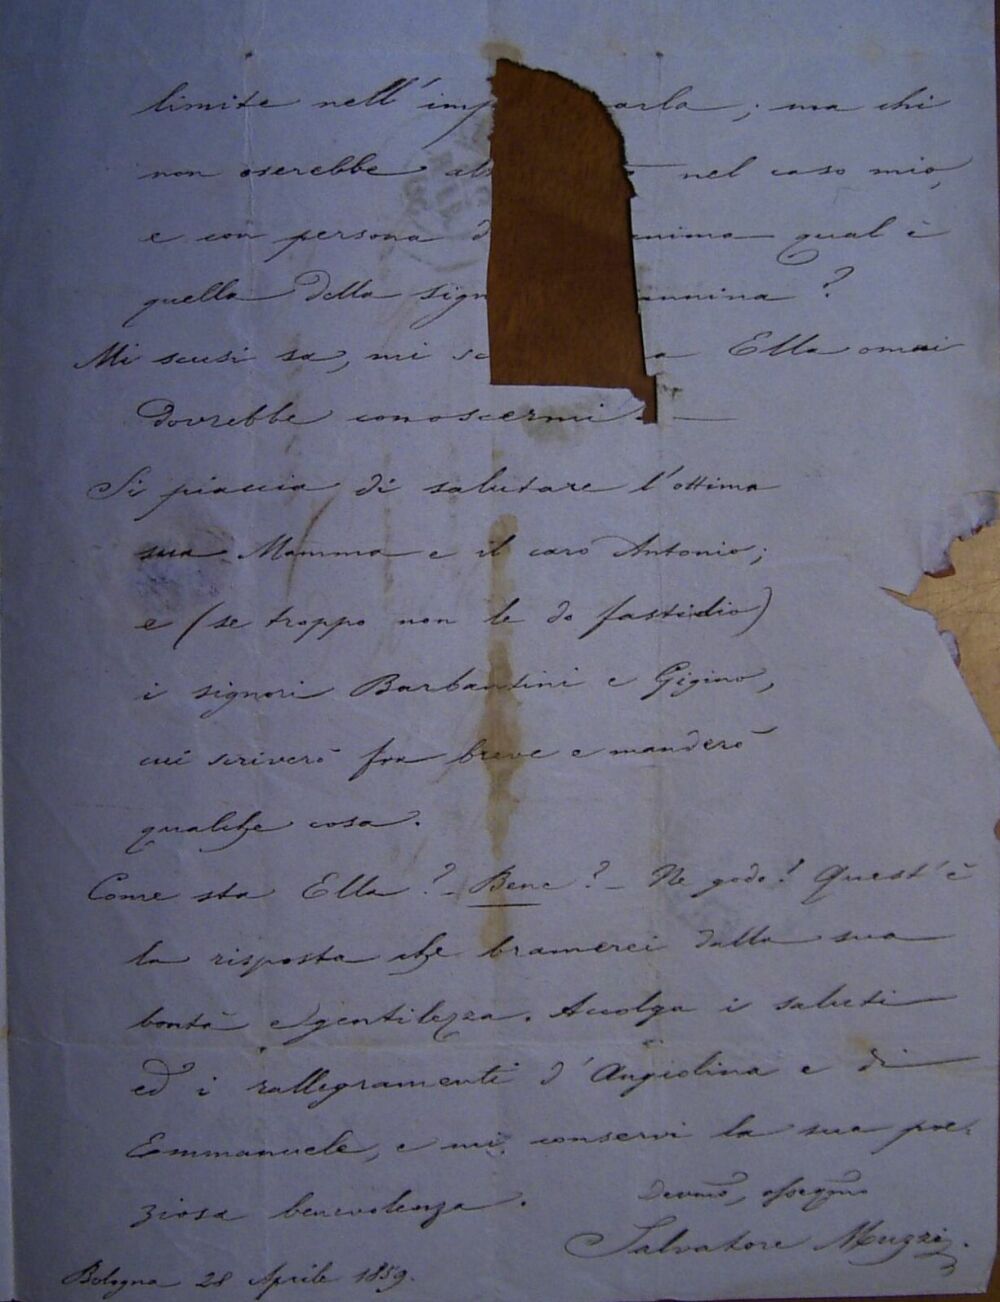 limite nell'imp arla; ma chi
non oserebbe nel caso mio,
e con persona d anima qual è
quella della sign annina?
Mi scusi sa, mi sc a Ella omai
dovrebbe conoscermi —
Si piaccia di salutare l'ottima
sua Mamma e il caro Antonio;
e (se troppo non le do fastidio)
i signori Barbantini e Gigino,
cui scriverò fra breve e manderò
qualche cosa.
Come sta Ella? – Bene? – Ne godo! Quest'è
la risposta che bramerei dalla sua
bontà e gentilezza. Accolga i saluti
ed i rallegramenti d'Angiolina e di
Emmanuele, e mi conservi la sua pre-
ziosa benevolenza.
Devmo, ossequmo
Salvatore Muzzi.
Bologna 28 Aprile 1859.